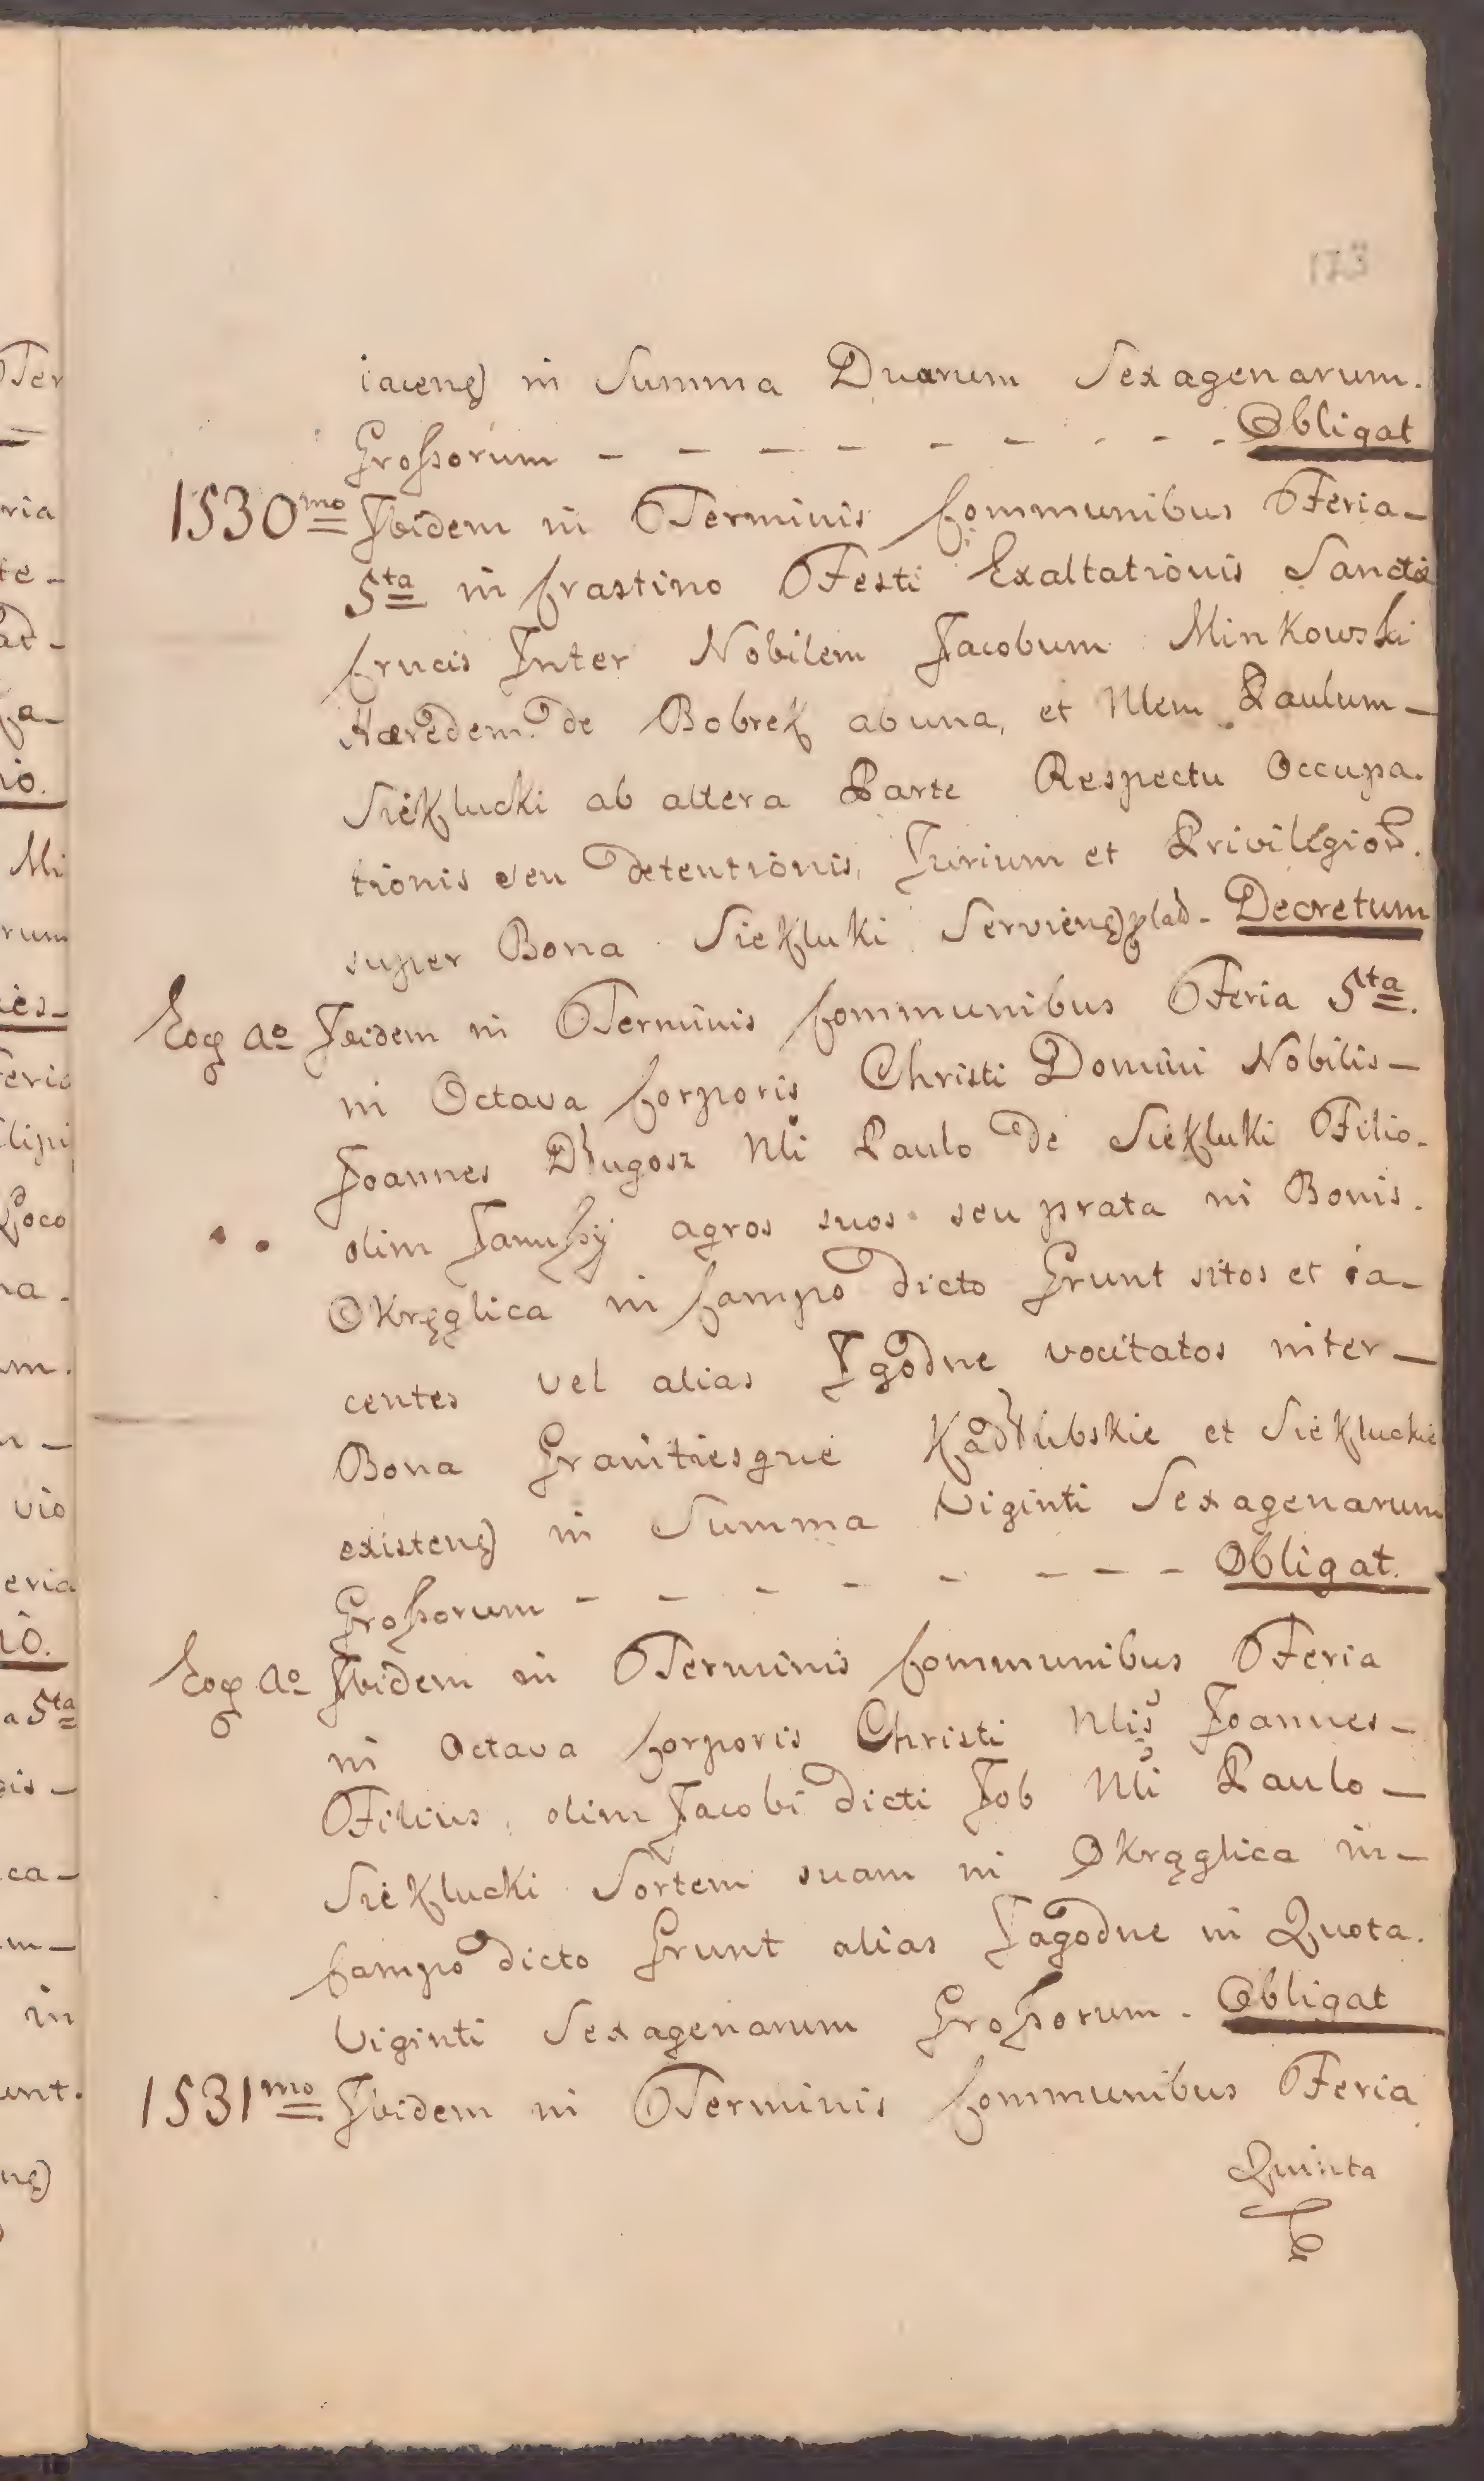 123
iaceng) in Summa Duarum Sexagenarum.
Großorum - - - - - - - - Obligat
1530mo Ibidem in Terminis Communibus Feria -
5ta in Crastino Festi Exaltationis Sanctæ
Crucis Inter Nobilem Jacobum Minkowski
Hæredem de Bobrek ab una, et Nlem Paulum -
Siekłucki ab altera Parte Respectu Occupa.
tionis seu detentionis, Jurium et Privilegior.
super Bona Siekluki Servieng) lad - Decretum
Eoq Ao Ibidem in Terminis Communibus Feria 5ta.
in Octava Corporis Christi Domini Nobilis -
Joannes Długosz Nli Paulo de Siekluki Filio.
olim Janußÿ agros suos seu prata in Bonis.
Okręglica in Campo dicto Grunt sitos et ia -
centes vel alias Jgodne vocitatos inter -
Bona Granitiesque Kadłubskie et Siekluckie
existeng) in Summa Viginti Sexagenarum
Großorum - - - - - - - - Obligat.
Eoq Ao Ibidem in Terminis Communibus Feria
in Octava Corporis Christi Nlis Joannes -
Filius olim Jacobi dicti Job Nli Paulo -
Sieklucki Sortem suam in Okrąglica in -
Campo dicto Grunt alias Jagodne in Quota.
Viginti Sexagenarum Großorum - Obligat
1531mo Ibidem in Terminis Communibus Feria
Quinta